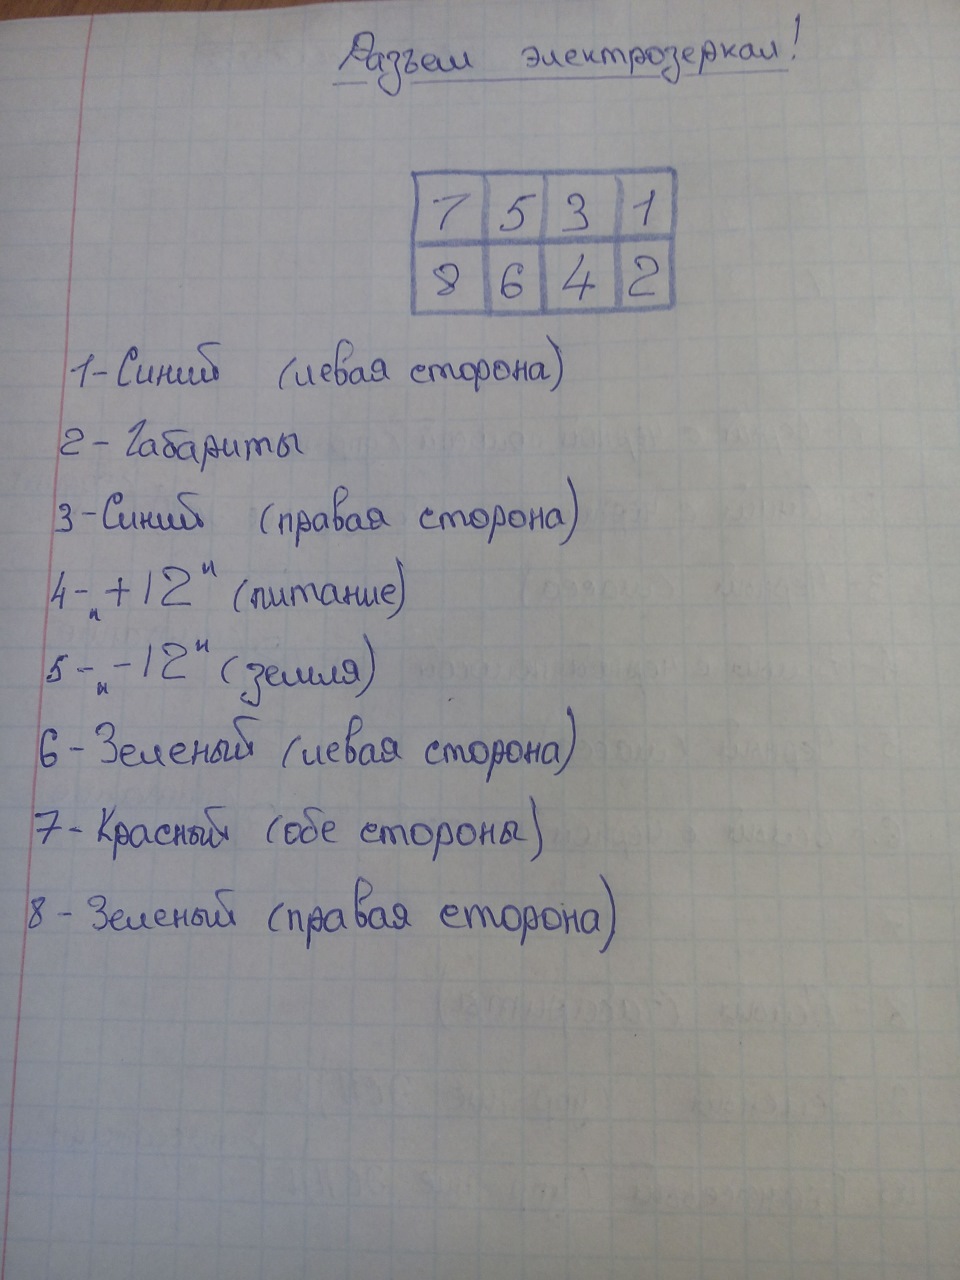 Разъем электрозеркал!
7 5 3 1
8 6 4 2
1-Синий (левая сторона)
2-Габариты
3-Синий (правая сторона)
4-„+12" (питание)
5-„-12" (земля)
6-Зеленый (левая сторона)
7-Красный (обе стороны)
8-Зеленый (правая сторона)